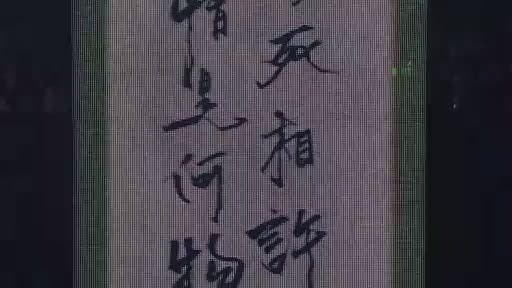 死相許
情是何物